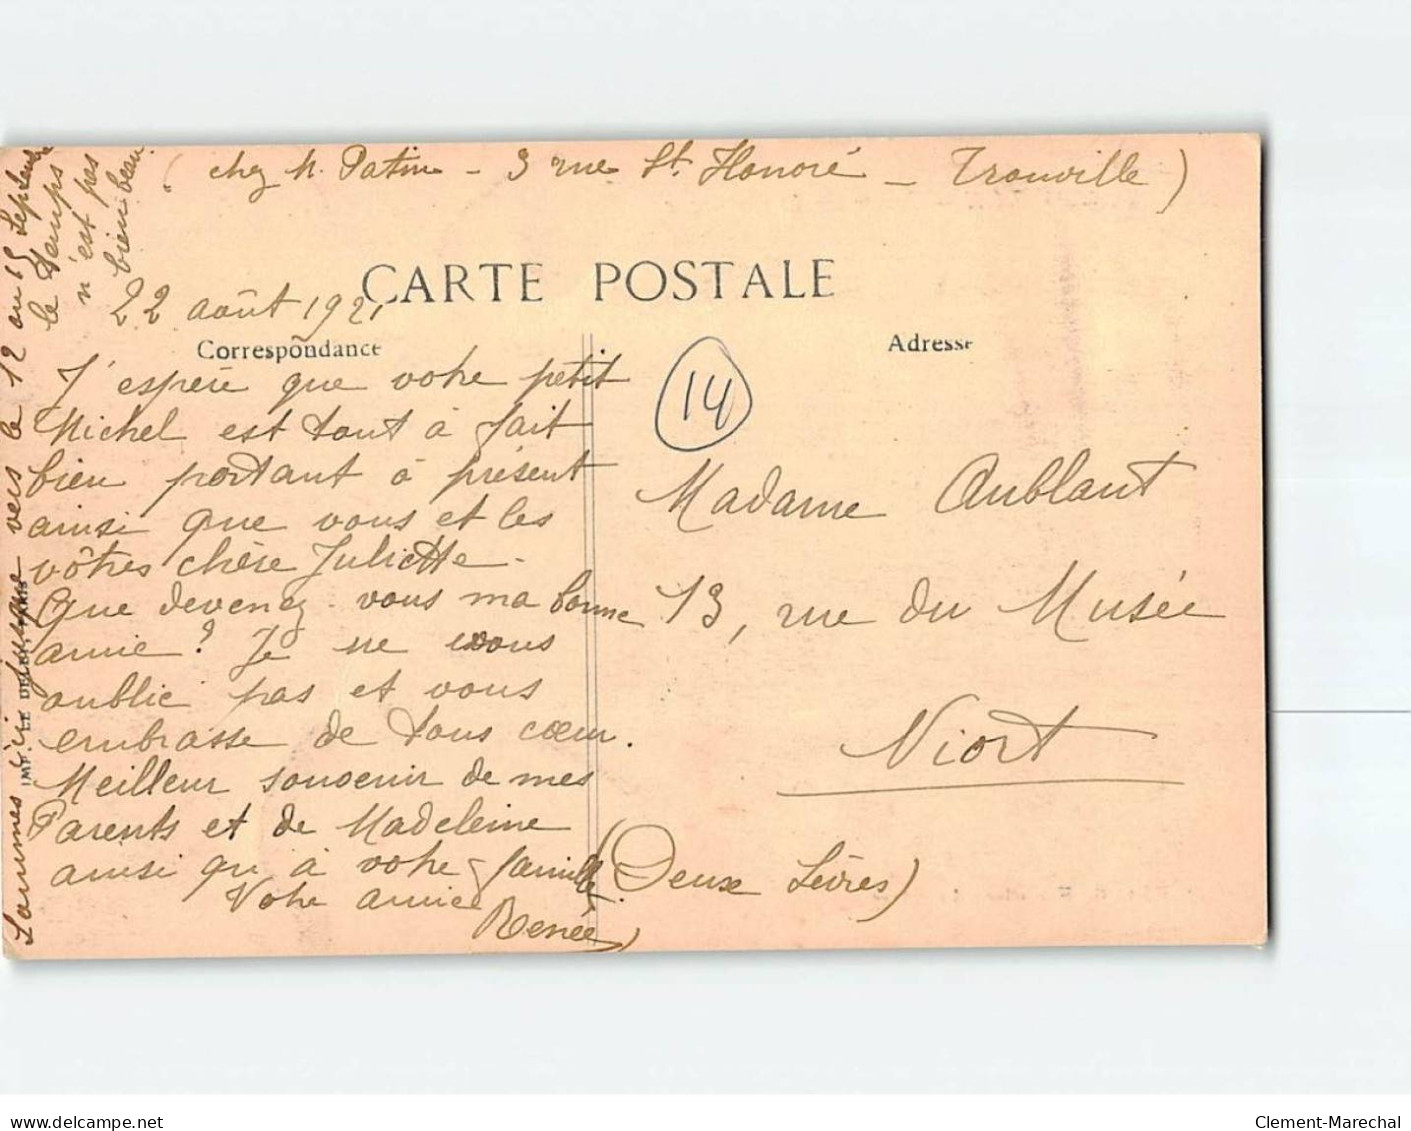 ( chez M. Patin - 3 rue St. Honoré - Trouville )
CARTE POSTALE
22 août 1921
Correspondance
Adresse
14
J'espère que votre petit
Michel est tout à fait
bien portant à présent
ainsi que vous et les
vôtres chère Juliette -
Que devenez-vous ma bonne
amie ? Je ne vous
oublie pas et vous
embrasse de tous cœur.
Meilleur souvenir de mes
Parents et de Madeleine
ainsi qu'à votre famille.
Votre amie
Renée
Sommes ici jusque vers le 12 ou 15 Septembre
le temps
n'est pas
bien beau.
IMP.
Madame Aublant
13, rue du Musée
Niort
(Deux Sèvres)
delcampe.net
Clement-Marechal